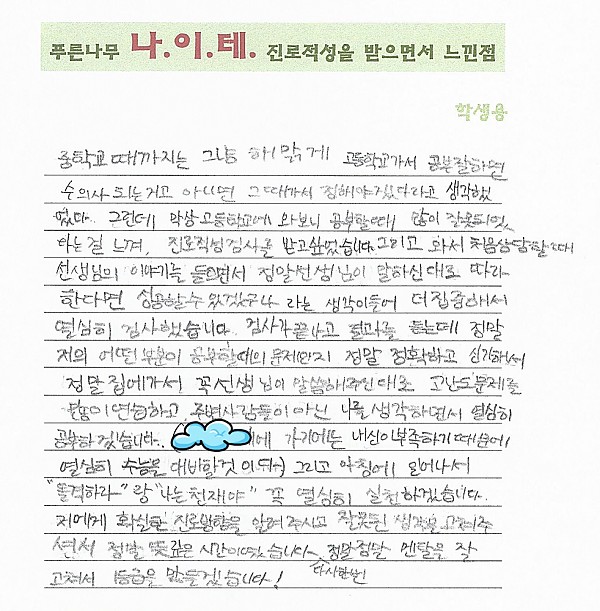 푸른나무 나.이.테. 진로적성을 받으면서 느낀점
학생용
중학교 때까지는 그냥 해맑게 고등학교가서 공부잘하면
수의사 되는거고 아니면 그때가서 정해야겠다라고 생각했
었다. 그런데 막상 고등학교에 와보니 공부할때 많이 잘못되었
다는걸 느껴, 진로적성검사를 받고싶었습니다. 그리고 와서 처음상담할때
선생님의 이야기를 들으면서 정말선생님이 말하신대로 따라
한다면 성공할수 있겠구나 라는 생각이들어 더집중해서
열심히 검사했습니다. 검사가 끝나고 결과를 듣는데 정말
저의 어떤 부분이 공부할때의 문제인지 정말 정확하고 신기해서
정말 집에가서 꼭선생님이 말씀해주신대로 고난도문제를
많이연습하고 주변사람들이 아닌 나를 생각하면서 열심히
공부하겠습니다. 에 가기에는 내신이부족하기때문에
열심히 수능을 대비할것이다. 그리고 아침에 일어나서
"돌격하라" 랑 "나는 천재야" 꼭 열심히 실천하겠습니다.
저에게 확실한 진로방향을 알려주시고 잘못된 생각을 고쳐주
셔서 정말 뜻깊은 시간이였습니다. 정말정말 멘탈을 잘
고쳐서 1등급을 만들겠습니다! 다시한번